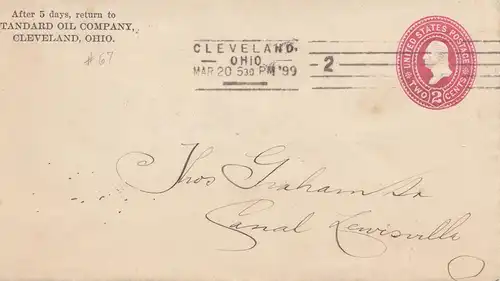 After 5 days, return to
TANDARD OIL COMPANY,
CLEVELAND, OHIO.
#67
CLEVELAND,
OHIO
MAR 20 5 30 PM '99
2
UNITED STATES POSTAGE
TWO 2 CENTS
Thos Graham
Canal Lewisville